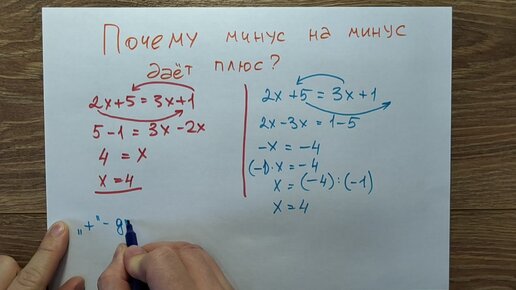 Почему минус на минус
даёт плюс?
2x+5=3x+1
5-1=3x-2x
4=x
x=4
2x+5=3x+1
2x-3x=1-5
-x=-4
(-1)·x=-4
x=(-4):(-1)
x=4
„+"-